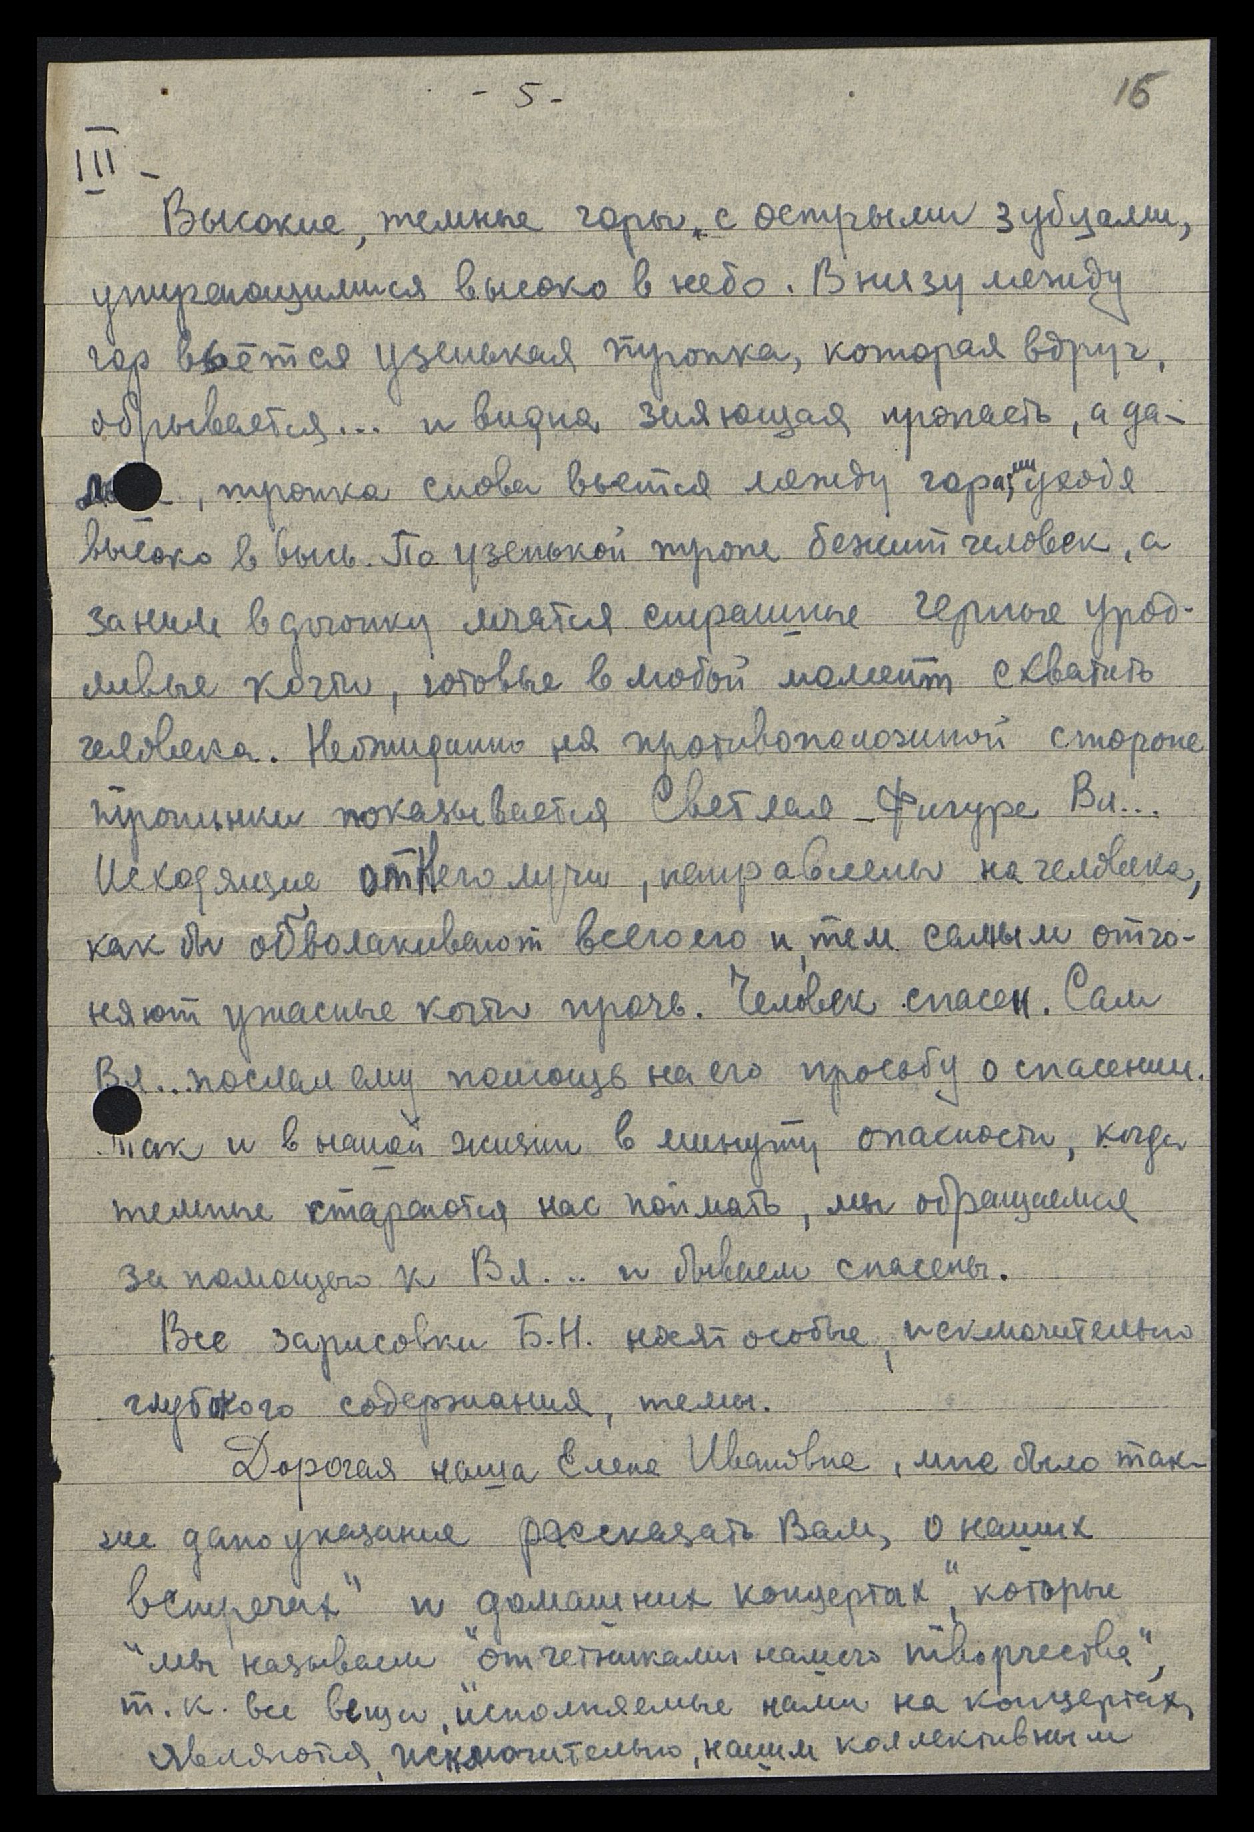 - 5 -
15
III -
Высокие, темные горы, с острыми зубцами,
упирающимися высоко в небо. Внизу между
гор вьётся узенькая тропка, которая вдруг,
обрывается... и видна зияющая пропасть, а да-
, тропка снова вьется между горами, уходя
высоко в высь. По узенькой тропе бежит человек, а
за ним вдогонку мчатся страшные черные урод-
ливые когти, готовые в любой момент схватить
человека. Неожиданно на противоположной стороне
тропинки показывается Светлая Фигура Вл...
Исходящие от Него лучи, направлены на человека,
как бы обволакивают всего его и, тем самым отго-
няют ужасные когти прочь. Человек спасен. Сам
Вл... послал ему помощь на его просьбу о спасении.
Так и в нашей жизни в минуту опасности, когда
темные стараются нас поймать, мы обращаемся
за помощью к Вл... и бываем спасены.
Все зарисовки Б.Н. носят особые, исключительно
глубокого содержания, темы.
Дорогая наша Елена Ивановна, мне было так-
же дано указание рассказать Вам, о наших
встречах" и "домашних концертах", которые
"мы называем "отчетниками нашего творчества",
т.к. все вещи, исполняемые нами на концертах,
являются, исключительно, нашим коллективным